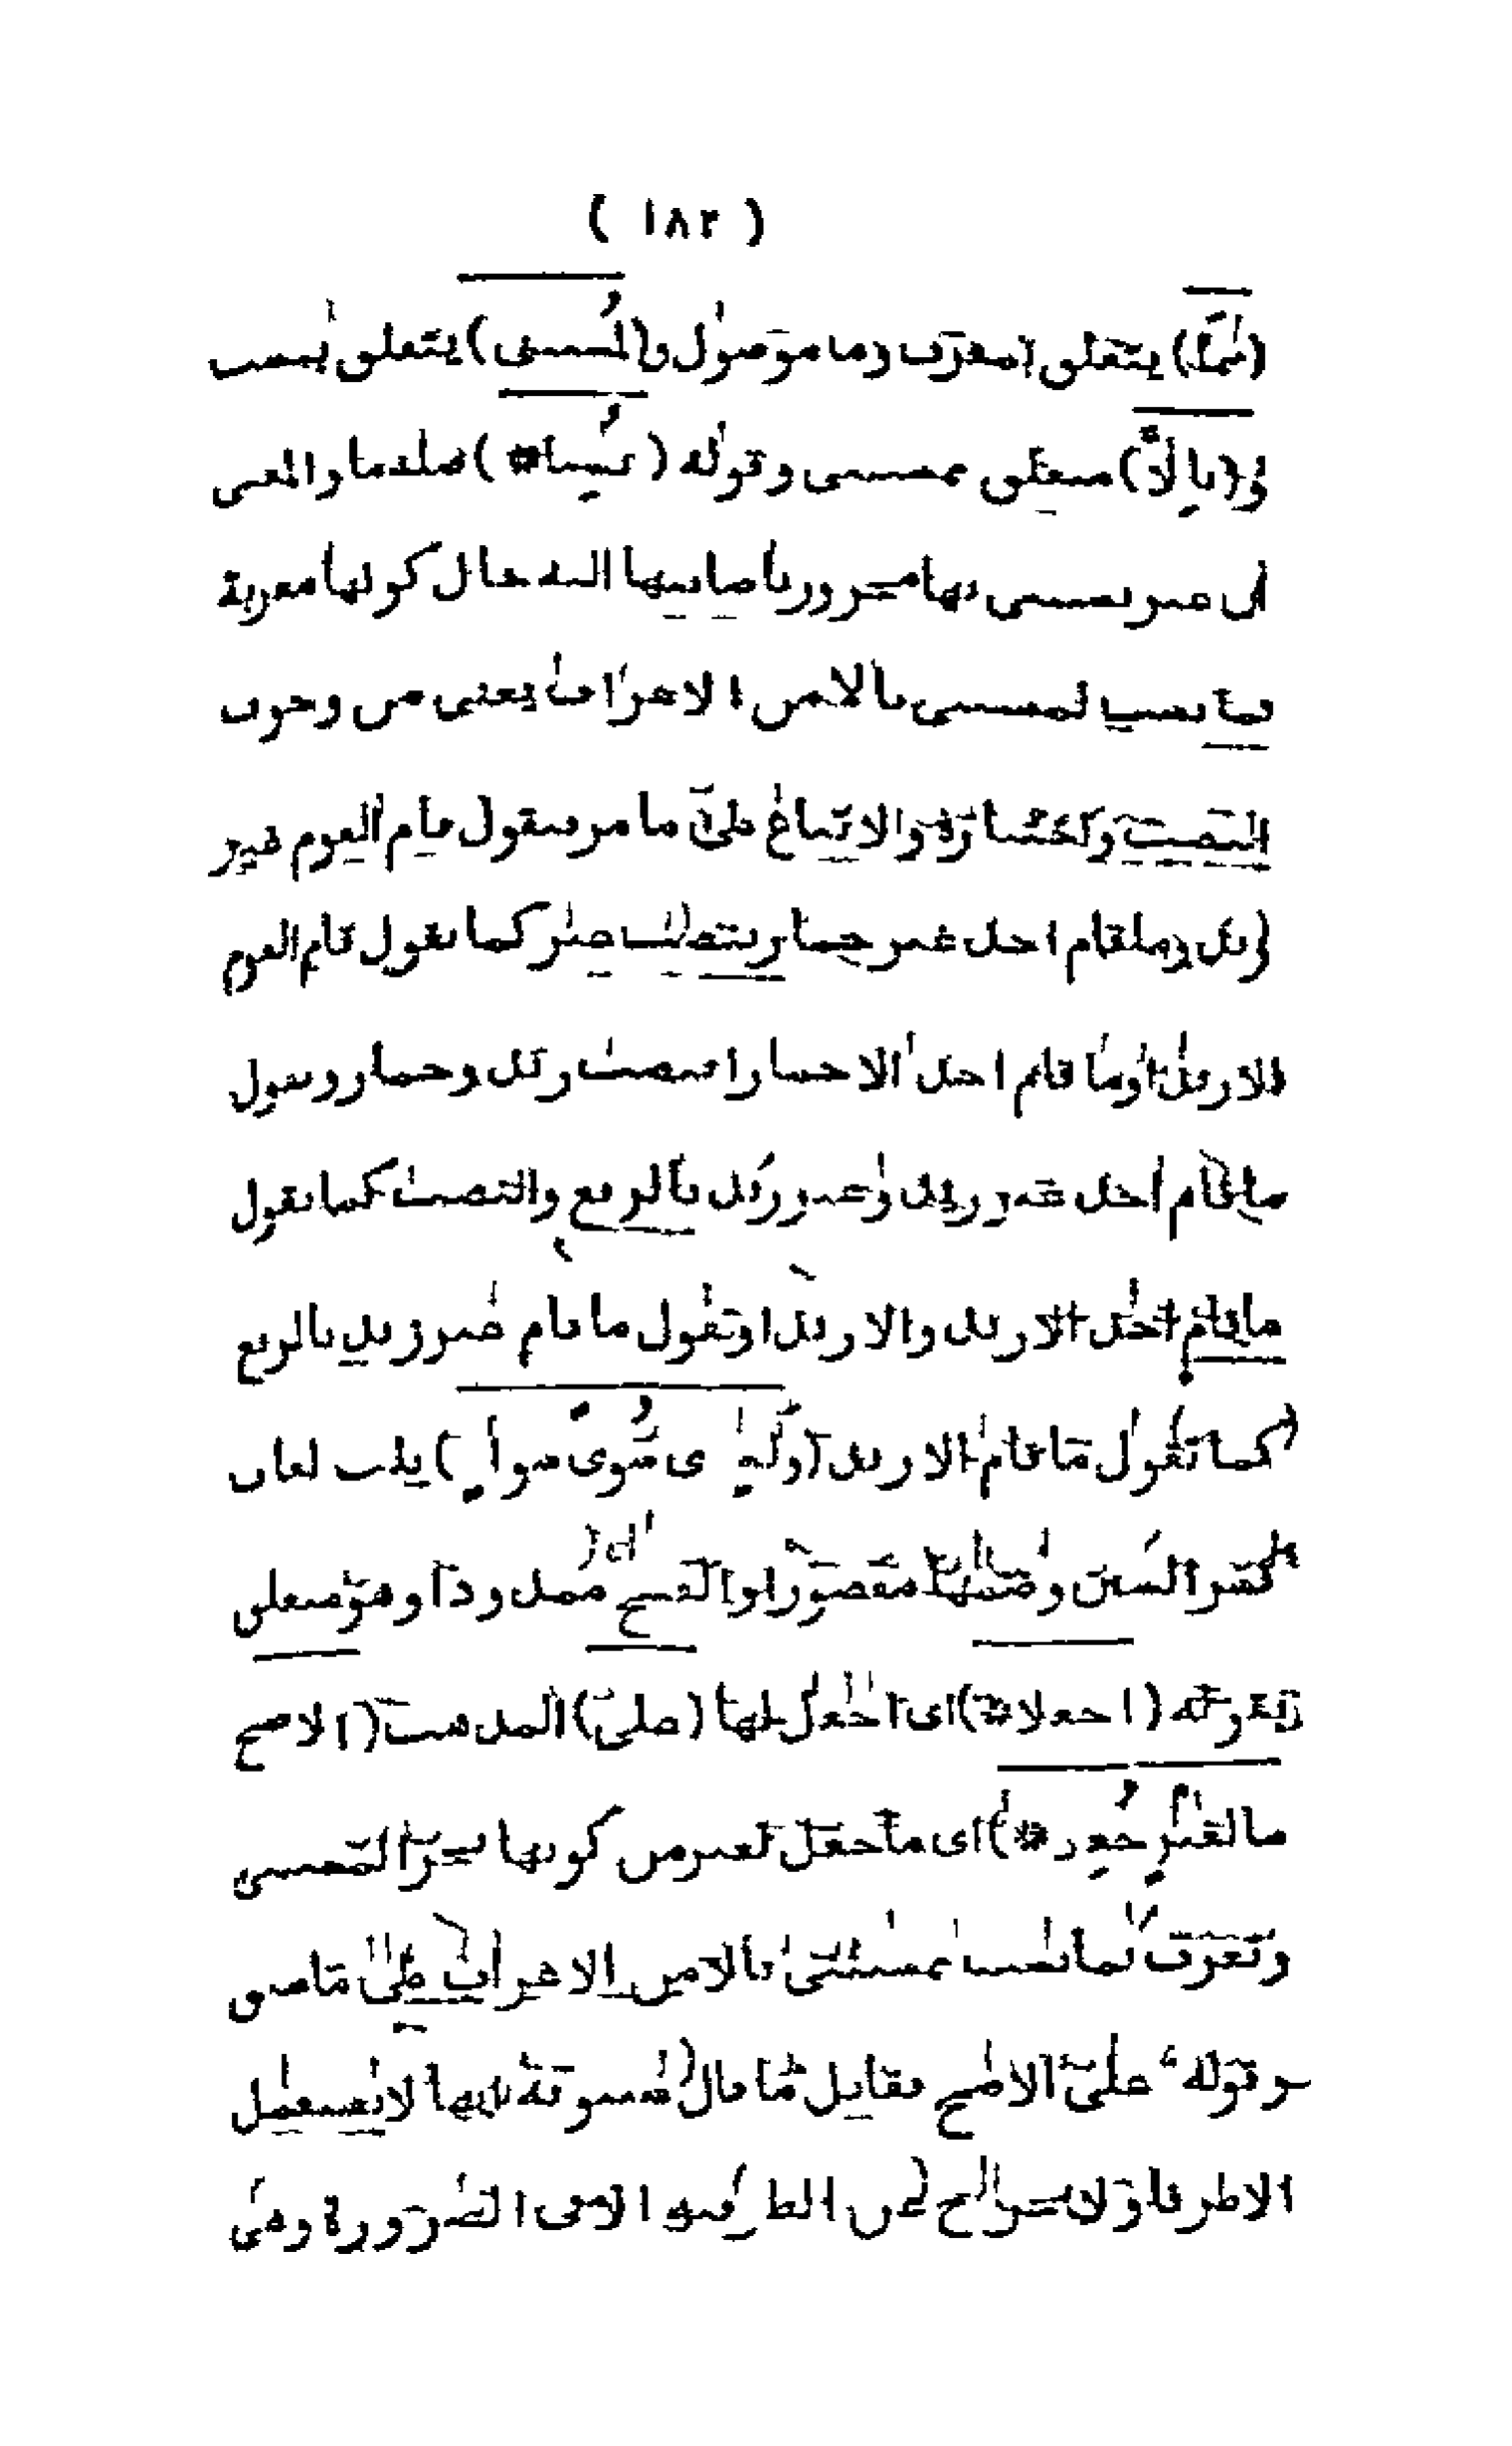 ( ١٨٢ )
(بما) يتعلق بمعرب وما موصول و(لمستثنى) يتعلق بنصب
و(بإلا) متعلق بمستثنى وقوله (نسبا*) صلة ما والمعنى
ان غير يستثنى بها مجرور باضافتها اليه حال كونها معربة
بما نصب لمستثنى بالا من الاعراب يعنى من وجوب
النصب واختياره والاتباع على ما مر فتقول قام القوم غير
زيد وما قام احد غير حمار بنصب غير كما تقول قام القوم
الا زيدا وما قام احد الا حمارا بنصب زيد وحمار وتقول
ما قام احد غير زيد وغير زيد بالرفع والنصب كما تقول
ما قام احد الا زيد والا زيدا وتقول ما قام غير زيد بالرفع
كما تقول ما قام الا زيد (ول سوى سوى سواء) بلغات
كسر السين وضمها مقصورا والفتح ممدودا وهو متعلق
بقوله (اجعلا*) اى اجعل لها (على) المذهب (الاصح
ما لغير جعل*) اى ما جعل لغير من كونها تجر المستثنى
وتعرب بما نصب بمستثنى بالا من الاعراب على ما سبق
وقوله على الاصح يقابل ما قال سيبويه انها لا تستعمل
الا ظرفا ولا تخرج عن الظرفية الا فى الضرورة وهى